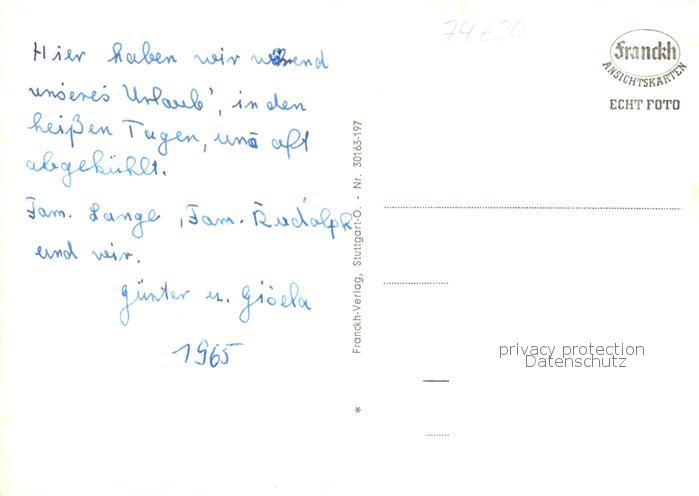 Hier haben wir während
unseres Urlaub', in den
heißen Tagen, uns oft
abgekühlt.
Fam. Lange, Fam. Rudolph
und wir.
Günter u. Gisela
1965
Franckh-Verlag, Stuttgart-O. - Nr. 30163-197
*
Franckh
ANSICHTSKARTEN
ECHT FOTO
privacy protection
Datenschutz